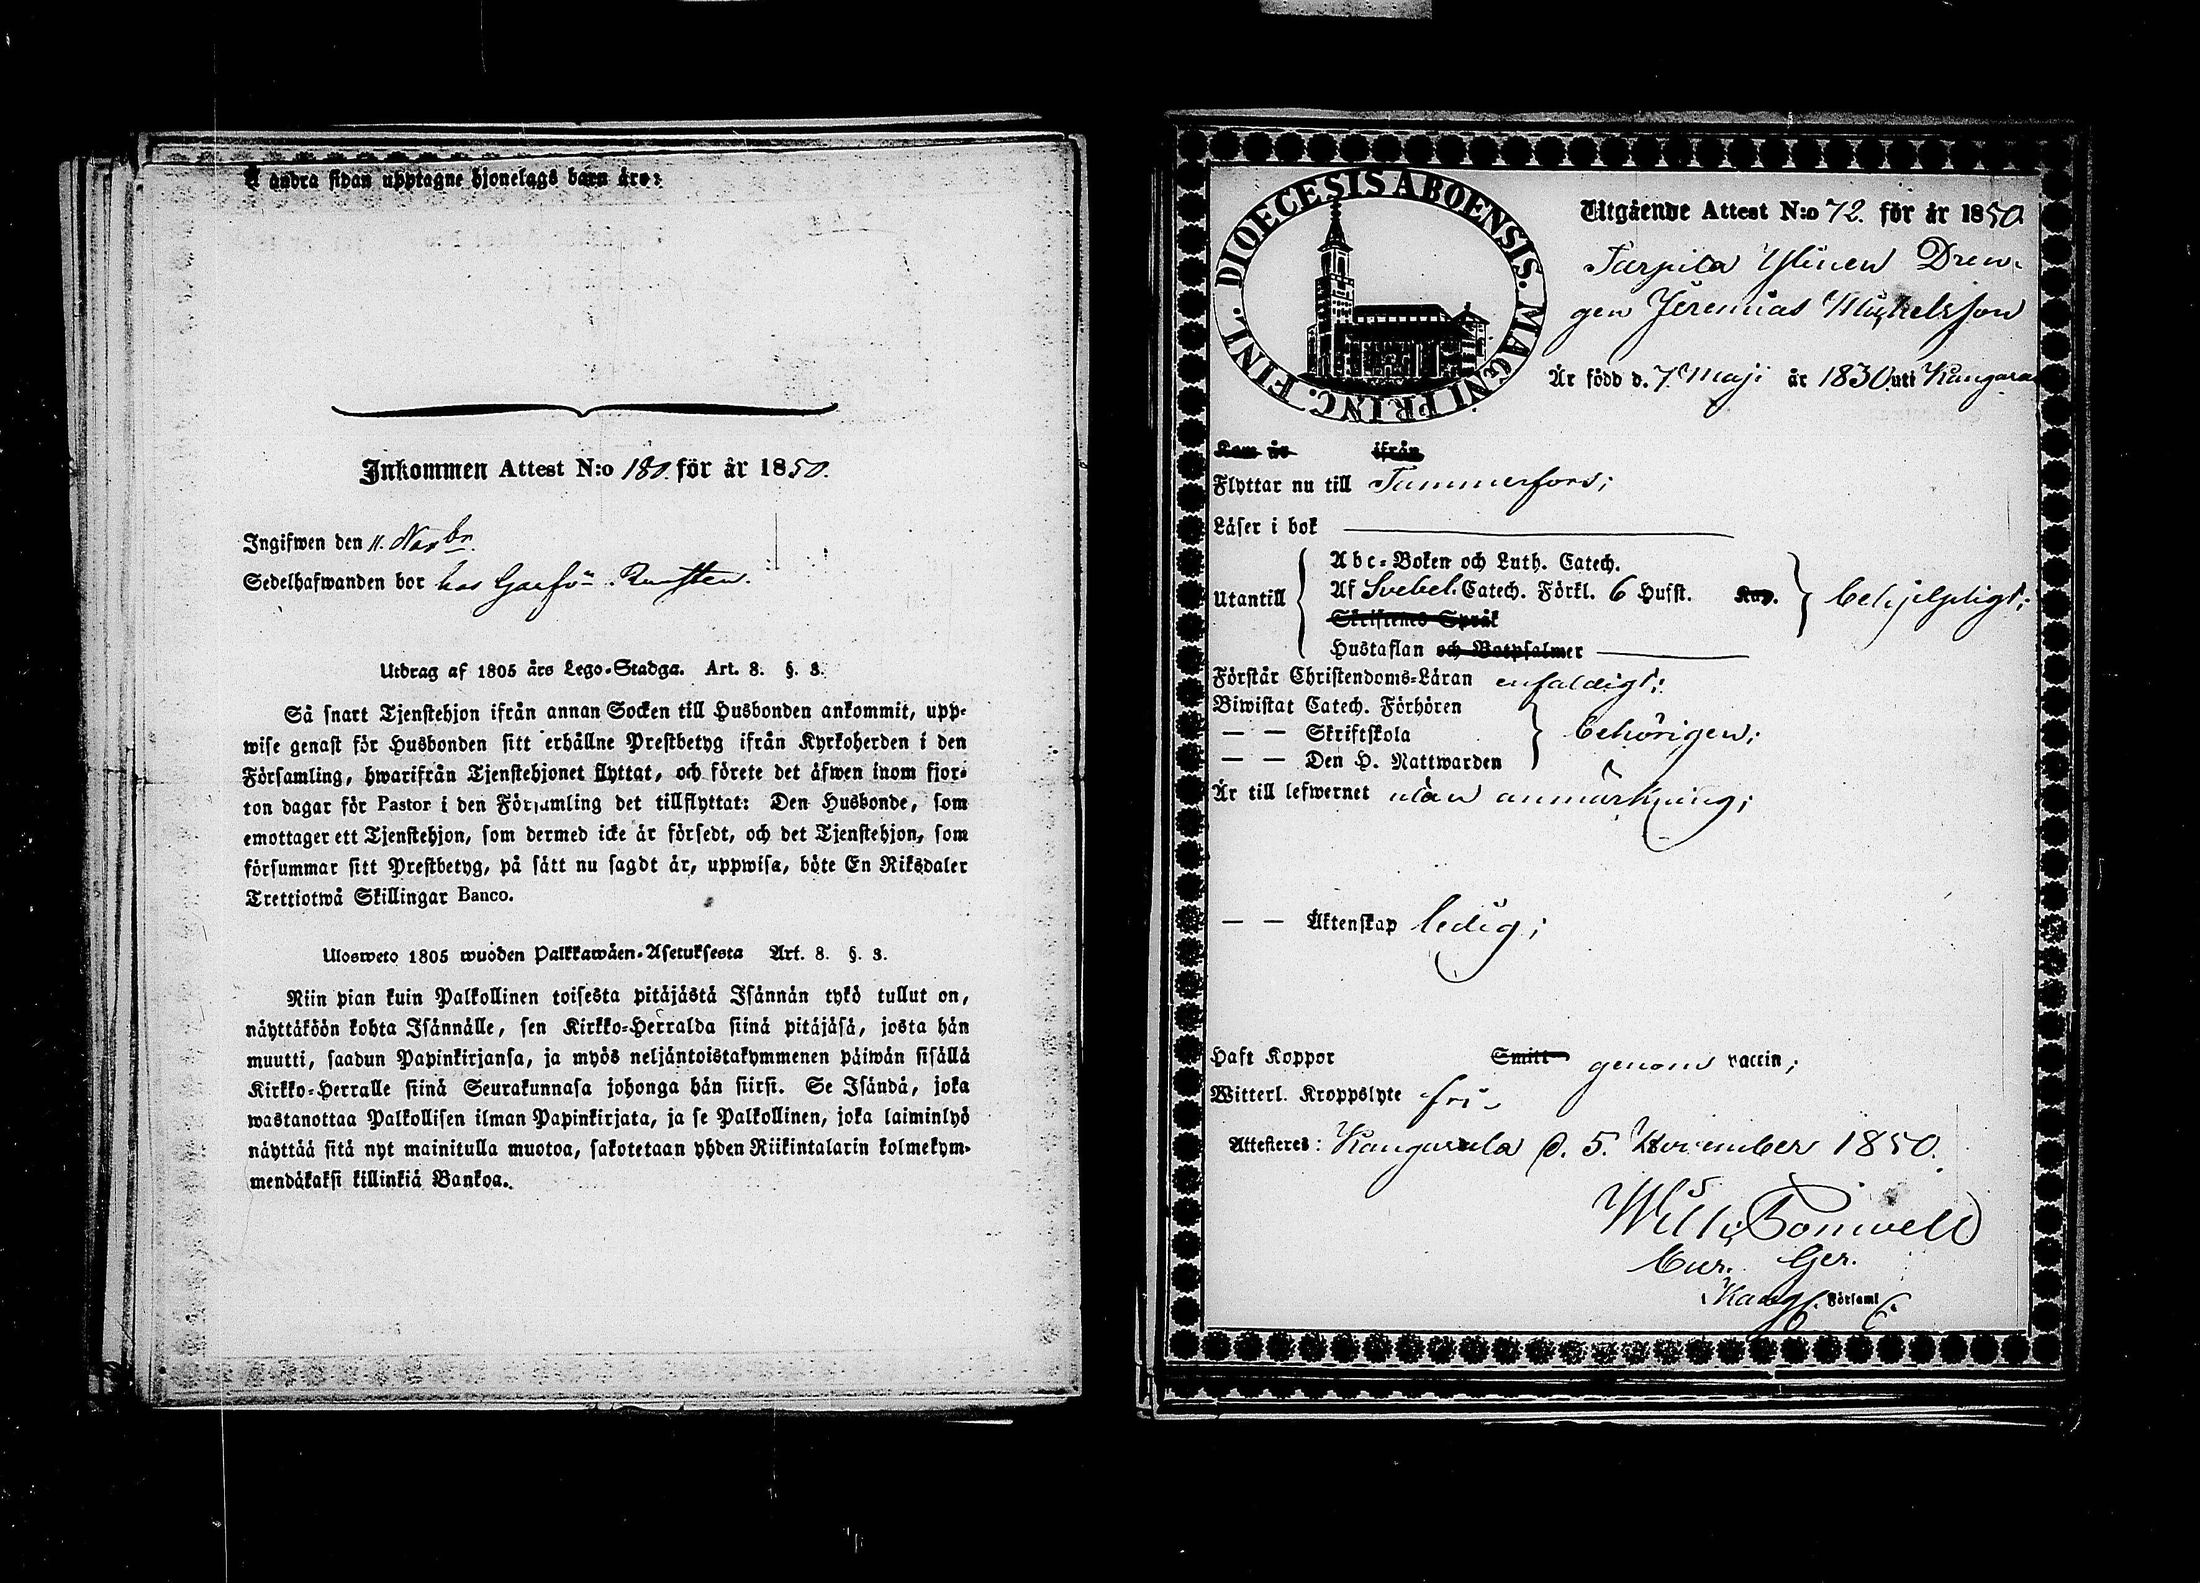 å andra sidan upptagne hjonelags barn äro:
Inkommen Attest N:o 180. för år 1850.
Ingifwen den 11. Novbr.
Sedelhafwanden bor hos Garfv.
Utdrag af 1805 års Lego-Stadga. Art. 8. §. 3.
Så snart Tjenstehjon ifrån annan Socken till Husbonden ankommit, upp-
wise genast för Husbonden sitt erhållne Prestbetyg ifrån Kyrkoherden i den
Församling, hwarifrån Tjenstehjonet flyttat, och förete det äfwen inom fjor-
ton dagar för Pastor i den Församling det tillflyttat: Den Husbonde, som
emottager ett Tjenstehjon, som dermed icke är försedt, och det Tjenstehjon, som
försummar sitt Prestbetyg, på sätt nu sagdt är, uppwisa, böte En Riksdaler
Trettiotwå Skillingar Banco.
Ulosweto 1805 wuoden Palkkawäen-Asetuksesta Art. 8. §. 3.
Niin pian kuin Palkollinen toisesta pitäjästä Isännän tykö tullut on,
näyttäköön kohta Isännälle, sen Kirkko-Herralda siinä pitäjäsä, josta hän
muutti, saadun Papinkirjansa, ja myös neljäntoistakymmenen päiwän sisällä
Kirkko-Herralle siinä Seurakunnasa johonga hän siirsi. Se Isändä, joka
wastanottaa Palkollisen ilman Papinkirjata, ja se Palkollinen, joka laiminlyö
näyttää sitä nyt mainitulla muotoa, sakotetaan yhden Riikintalarin kolmekym-
mendäkaksi killinkiä Bankoa.
DIOECESIS ABOENSIS. MAGNI PRINC. FINL.
Utgående Attest N:o 72. för år 1850
Tarpila Ylinen Dren-
gen Jeremias Michelsson
Är född d. 7. Maji år 1830 uti Kangasa
Kom år ifrån
Flyttar nu till Tammerfors;
Läser i bok
Abc-Boken och Luth. Catech.
Utantill Af Svebel. Catech. Förkl. 6 Hufst. Kap. behjelpligt;
Skriftenes Språk
Hustaflan och Botpsalmer
Förstår Christendoms-Läran enfaldigt;
Biwistat Catech. Förhören
— — Skriftskola behörigen;
— — Den H. Nattwarden
Är till lefwernet utan anmärkning;
— — Äktenskap ledig;
Haft Koppor Smitt genom vaccin;
Witterl. Kroppslyte fri
Attesteras: Kangasala d. 5. November 1850.
Wilh. Bonwell
Cur. Ger.
Kang. Församl.